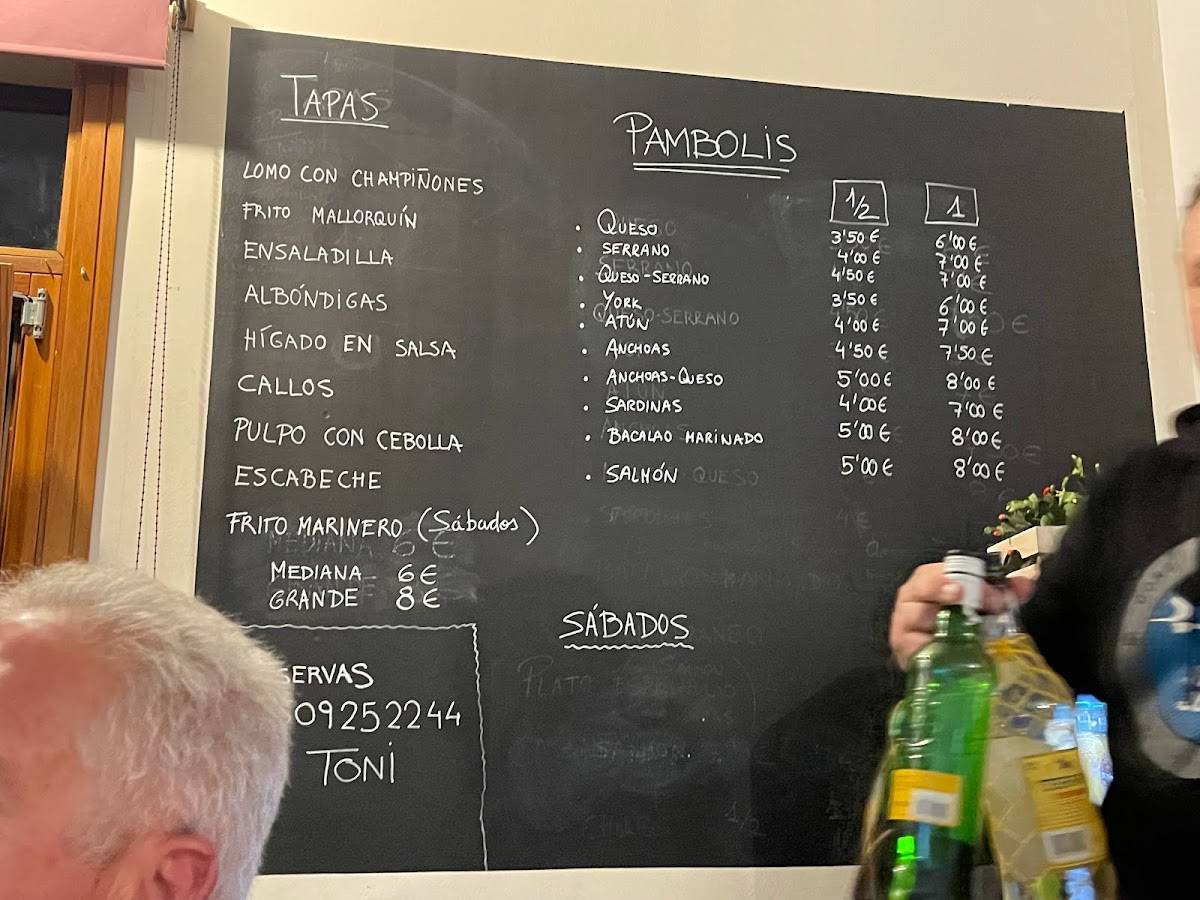 TAPAS
LOMO CON CHAMPIÑONES
FRITO MALLORQUÍN
ENSALADILLA
ALBÓNDIGAS
HÍGADO EN SALSA
CALLOS
PULPO CON CEBOLLA
ESCABECHE
FRITO MARINERO (Sábados)
MEDIANA 6€
GRANDE 8€
SERVAS
09252244
TONI
PAMBOLIS
1/2 1
• QUESO 3'50€ 6'00€
• SERRANO 4'00€ 7'00€
• QUESO-SERRANO 4'50€ 7'00€
• YORK 3'50€ 6'00€
• ATÚN 4'00€ 7'00€
• ANCHOAS 4'50€ 7'50€
• ANCHOAS-QUESO 5'00€ 8'00€
• SARDINAS 4'00€ 7'00€
• BACALAO MARINADO 5'00€ 8'00€
• SALMÓN 5'00€ 8'00€
SÁBADOS